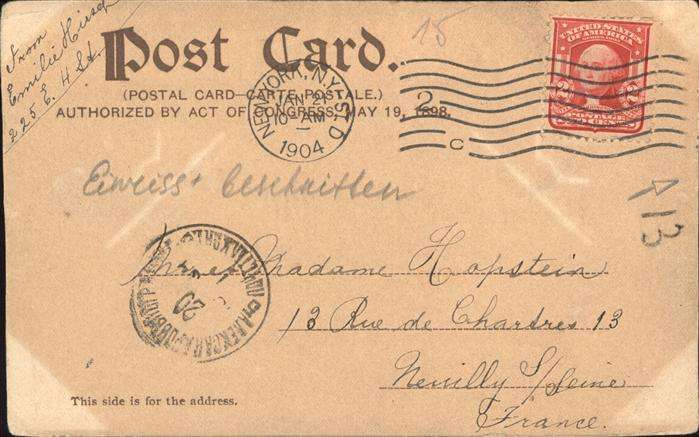 From
Emilie Hirsch
225 E. 4 St.
15
Post Card.
(POSTAL CARD—CARTE POSTALE.)
AUTHORIZED BY ACT OF CONGRESS, MAY 19, 1898.
NEW YORK, N.Y. STA. D
JAN 21
10 AM
1904
2
C
UNITED STATES
OF AMERICA
POSTAGE
TWO CENTS
Madame Hopstein
13 Rue de Chartres 13
Neuilly S/Seine
France.
13
20
This side is for the address.